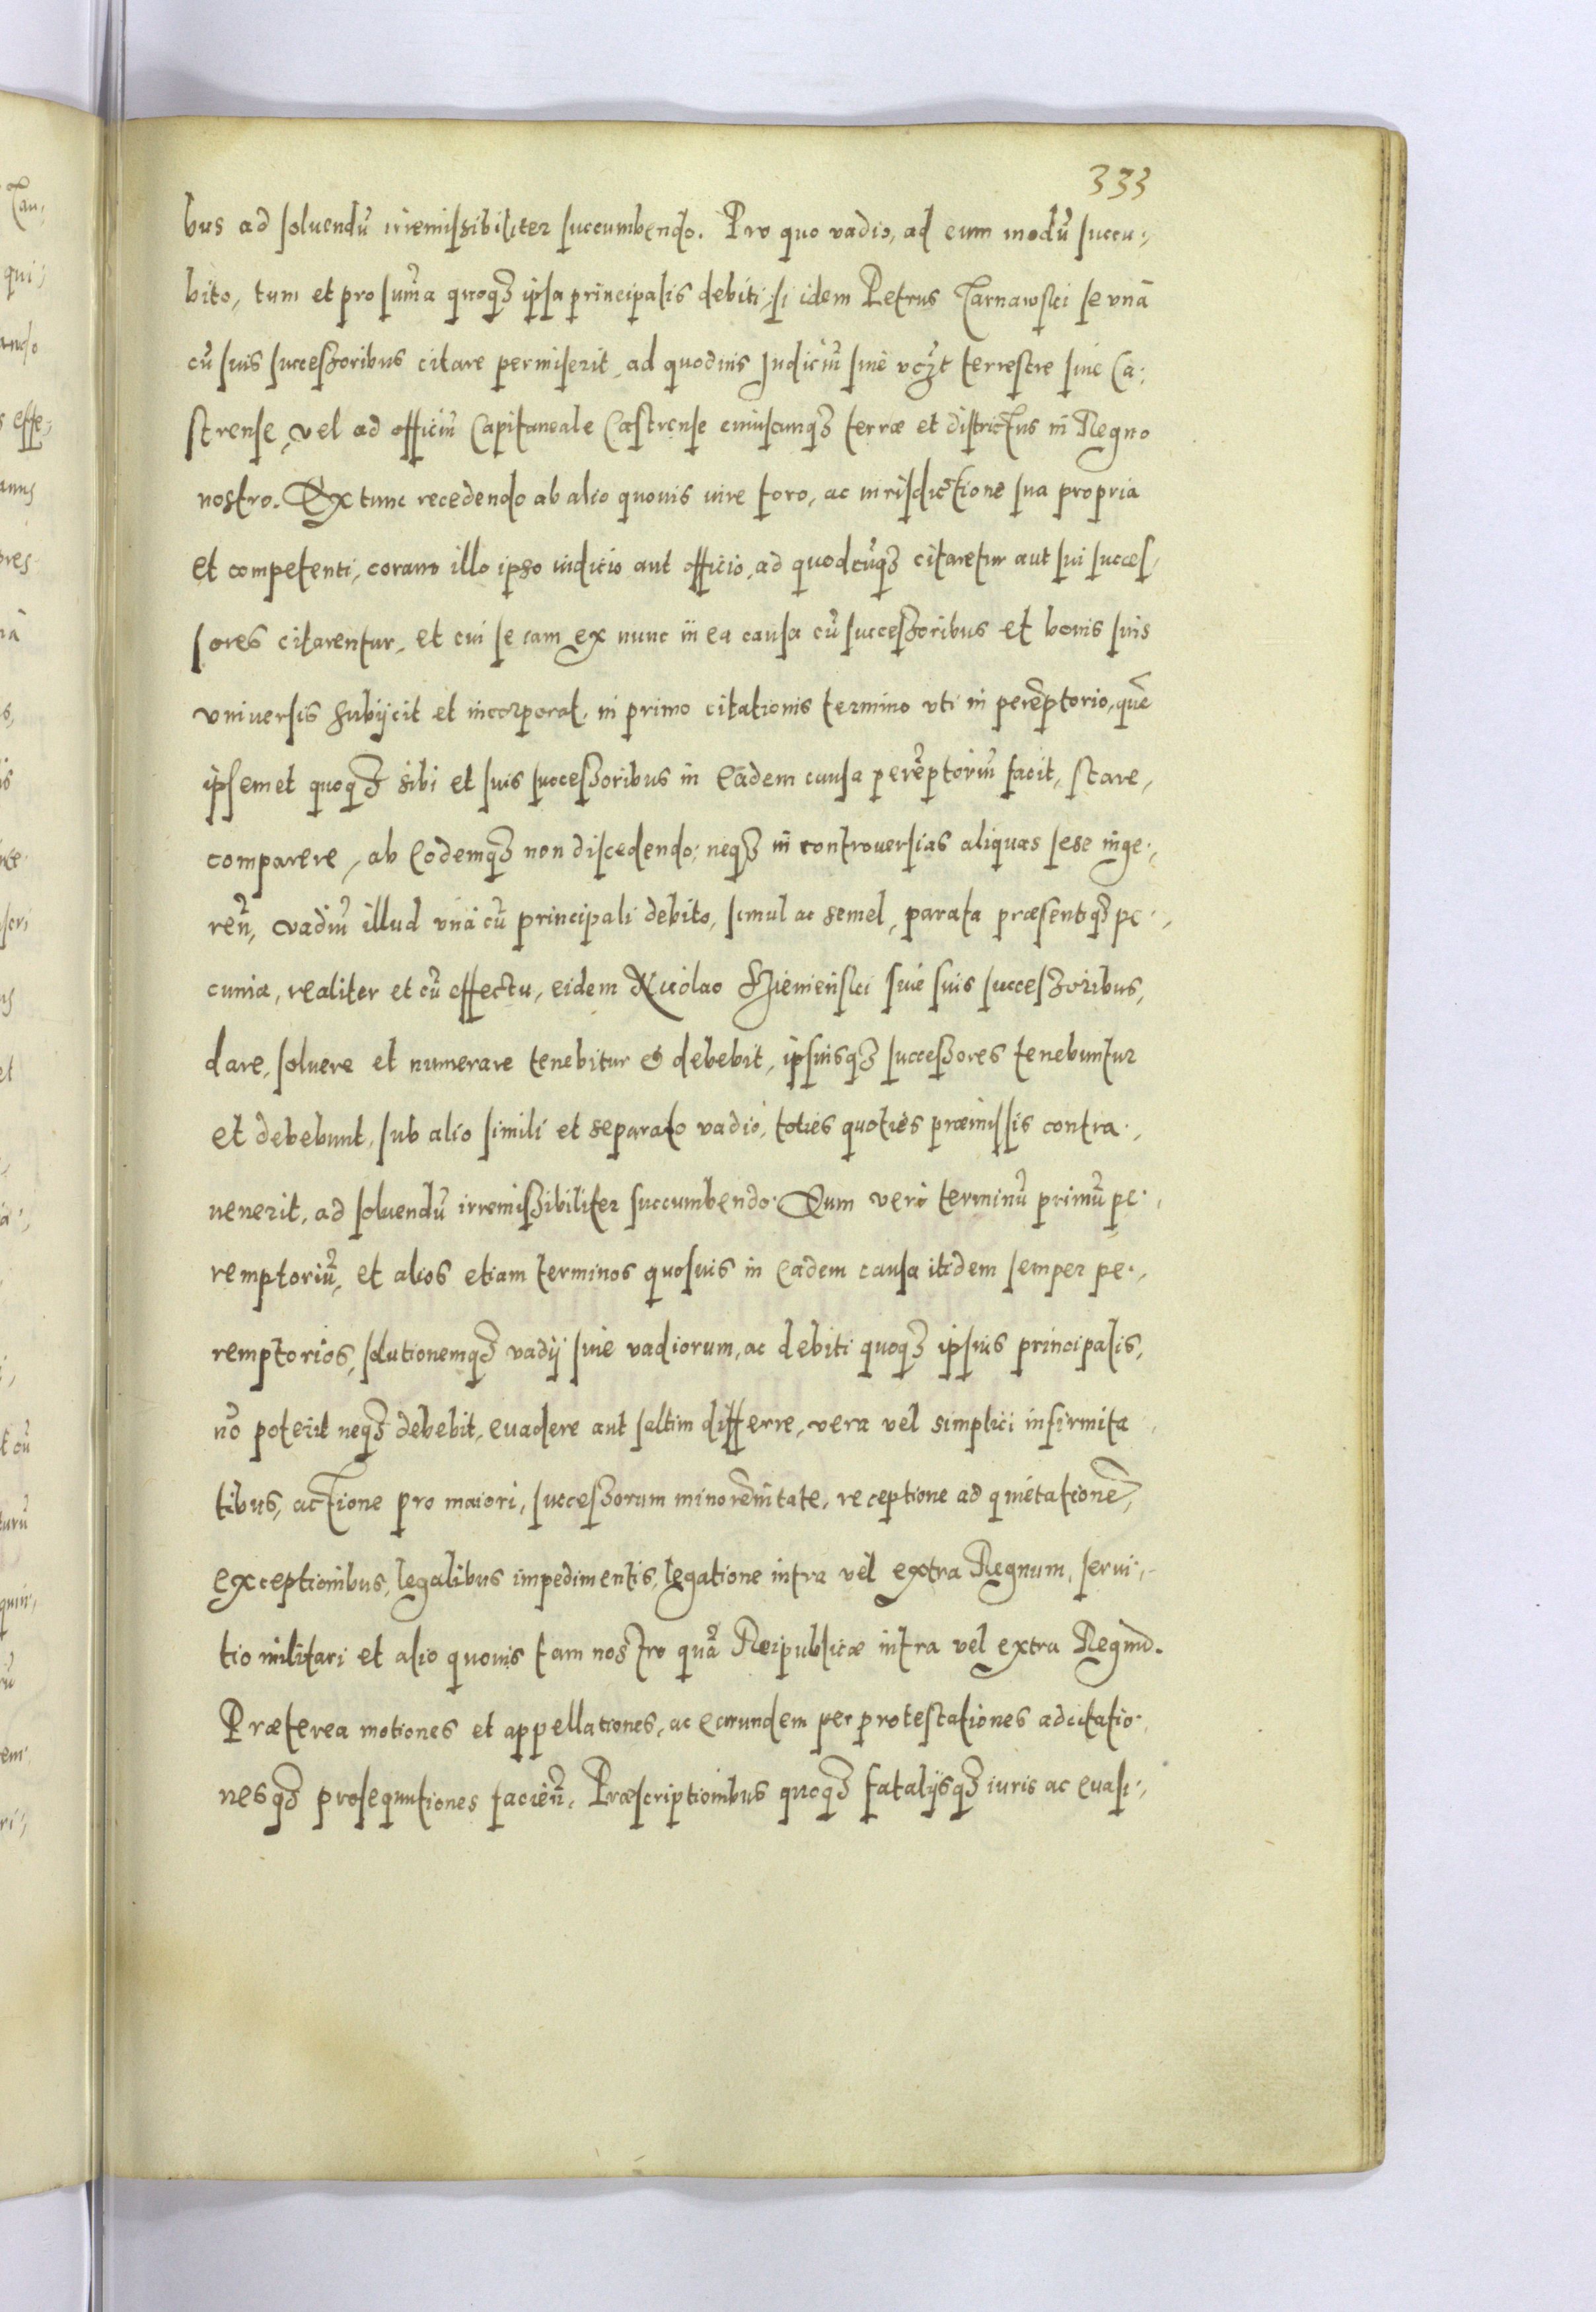 333
bus ad soluendũ irremissibiliter succumbendo. Pro quo vadio, ad eum modũ succu:,
bito, tum et pro sum̃a quoqꝫ ipsa principalis debiti, si idem Petrus Tarnawski se vnà
cũ suis successoribus citare permiserit, ad quoduis Judiciũ siue terrestre siue Ca:
strense, vel ad officiũ Capitaneale Castrense cuiuscunqꝫ terræ et districtus in Regno
nostro. Ex tunc recedendo ab alio quouis iure foro, ac iurisdictione sua propria
et competenti, coram illo ipso iudicio aut officio, ad quodcũqꝫ citaretur aut sui succes,
sores citarentur, et cui se iam ex nunc in ea causa cũ successoribus et bonis suis
vniuersis subijcit et incorporat, in primo citationis termino vti in perẽptorio, quẽ
ipsemet quoqꝫ sibi et suis successoribus in eadem causa perẽptoriũ facit, stare,
comparere, ab eodemqꝫ non discedendo, neqꝫ in controuersias aliquas sese inge:,
reñ, vadiũ illud vnà cũ principali debito, simul ac semel, parata præsentiqꝫ pe:,
cunia, realiter et cũ effectu, eidem Nicolao siue suis successoribus,
dare, soluere et numerare tenebitur & debebit, ipsiusqꝫ successores tenebuntur
et debebunt, sub alio simili et separato vadio, toties quoties præmissis contra:,
uenerit, ad soluendũ irremissibiliter succumbendo. Qum verò terminũ primũ pe:,
remptoriũ, et alios etiam terminos quosuis in eadem causa itidem semper pe:,
remptorios, solutionemqꝫ vadij siue vadiorum, ac debiti quoqꝫ ipsius principalis,
nõ poterit neqꝫ debebit, euadere aut saltim differre, vera vel simplici infirmita
tibus, actione pro maiori, successorum minorẽnitate, receptione ad quietationẽ,
exceptionibus, legalibus impedimentis, legatione intra vel extra Regnum, serui:,
tio militari et alio quouis tam nostro quã Reipublicæ intra vel extra Regnũ.
Præterea motiones et appellationes, ac earundem per protestationes adcitatio:
nesqꝫ prosequutiones facieñ. Præscriptionibus quoqꝫ fatalijsqꝫ iuris ac euasi:,